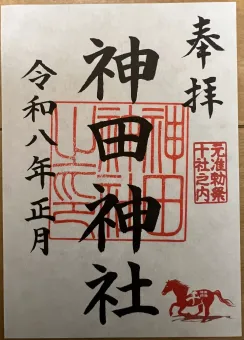 奉拝
元准勅祭
十社之内
神田神社
令和八年正月